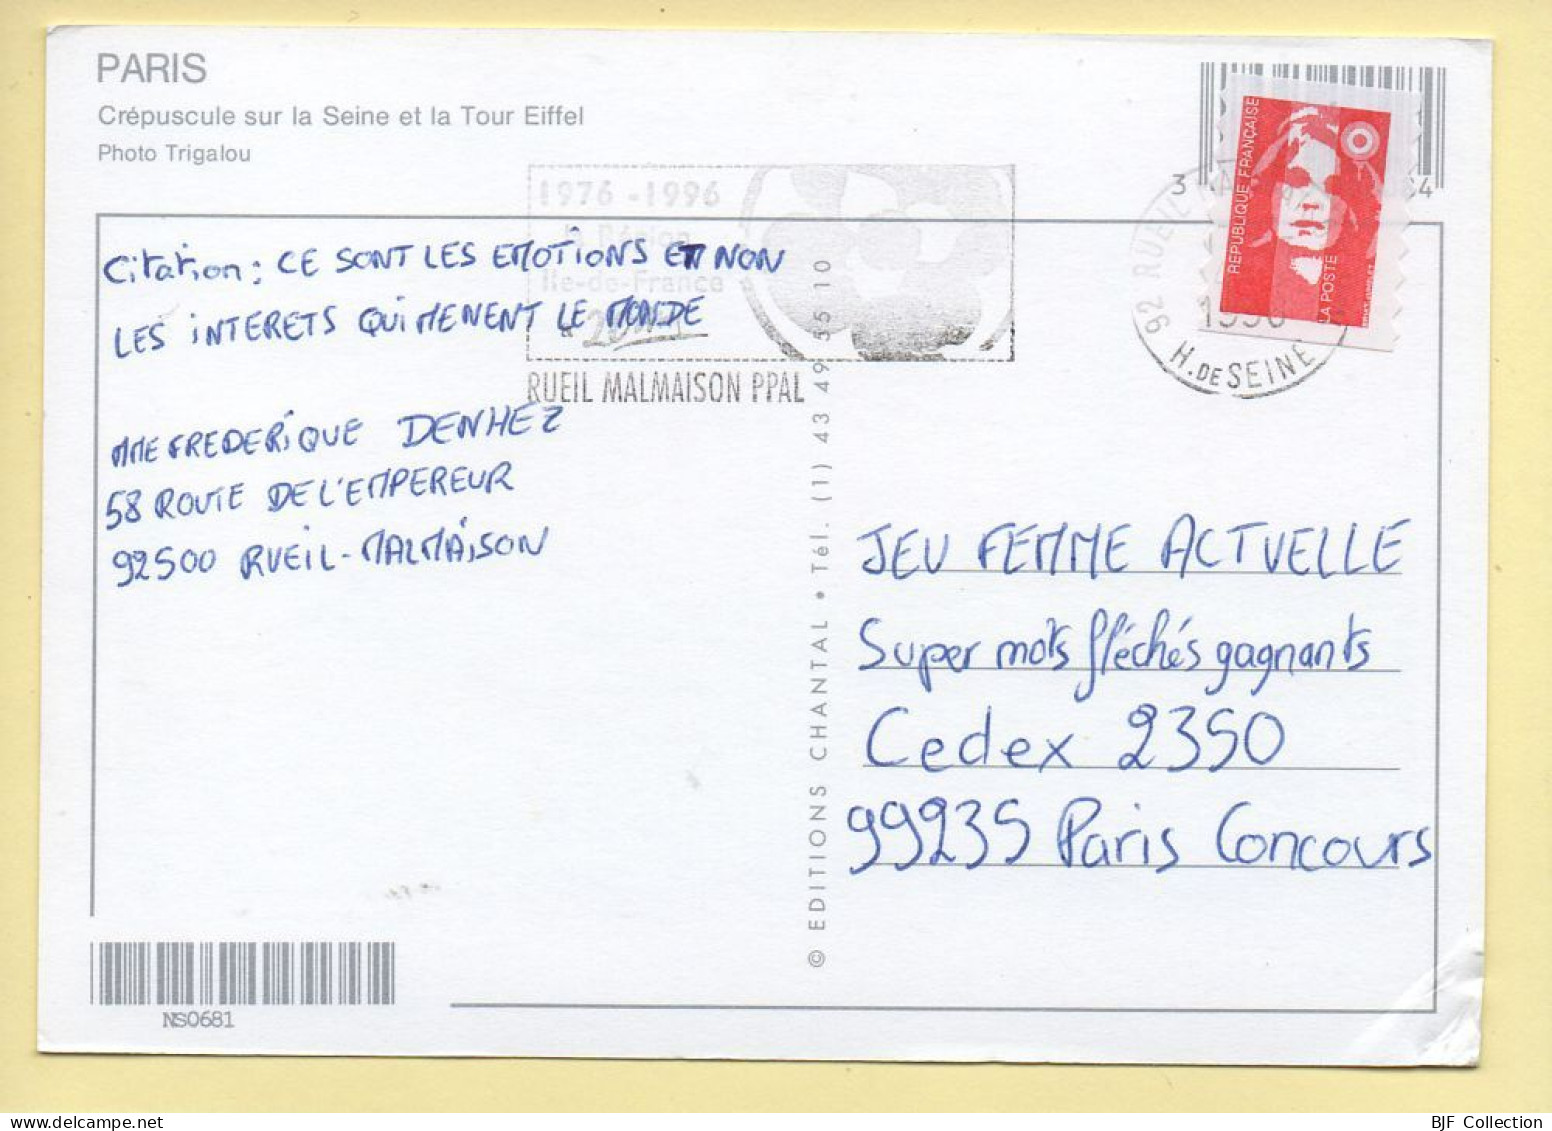 PARIS
Crépuscule sur la Seine et la Tour Eiffel
Photo Trigalou
1976 - 1996
la Région
Ile-de-France
a 20 ans
RUEIL MALMAISON PPAL
Citation : CE SONT LES EMOTIONS ET NON
LES INTERETS QUI MENENT LE MONDE
MME FREDERIQUE DENHEZ
58 ROUTE DE L'EMPEREUR
92500 RUEIL-MALMAISON
REPUBLIQUE FRANÇAISE
LA POSTE
3
64
92 RUEIL
1996
H. DE SEINE
© EDITIONS CHANTAL • Tél. (1) 43 49 55 10
JEU FEMME ACTUELLE
Super mots fléchés gagnants
Cedex 2350
99235 Paris Concours
NS0681
BJF Collection